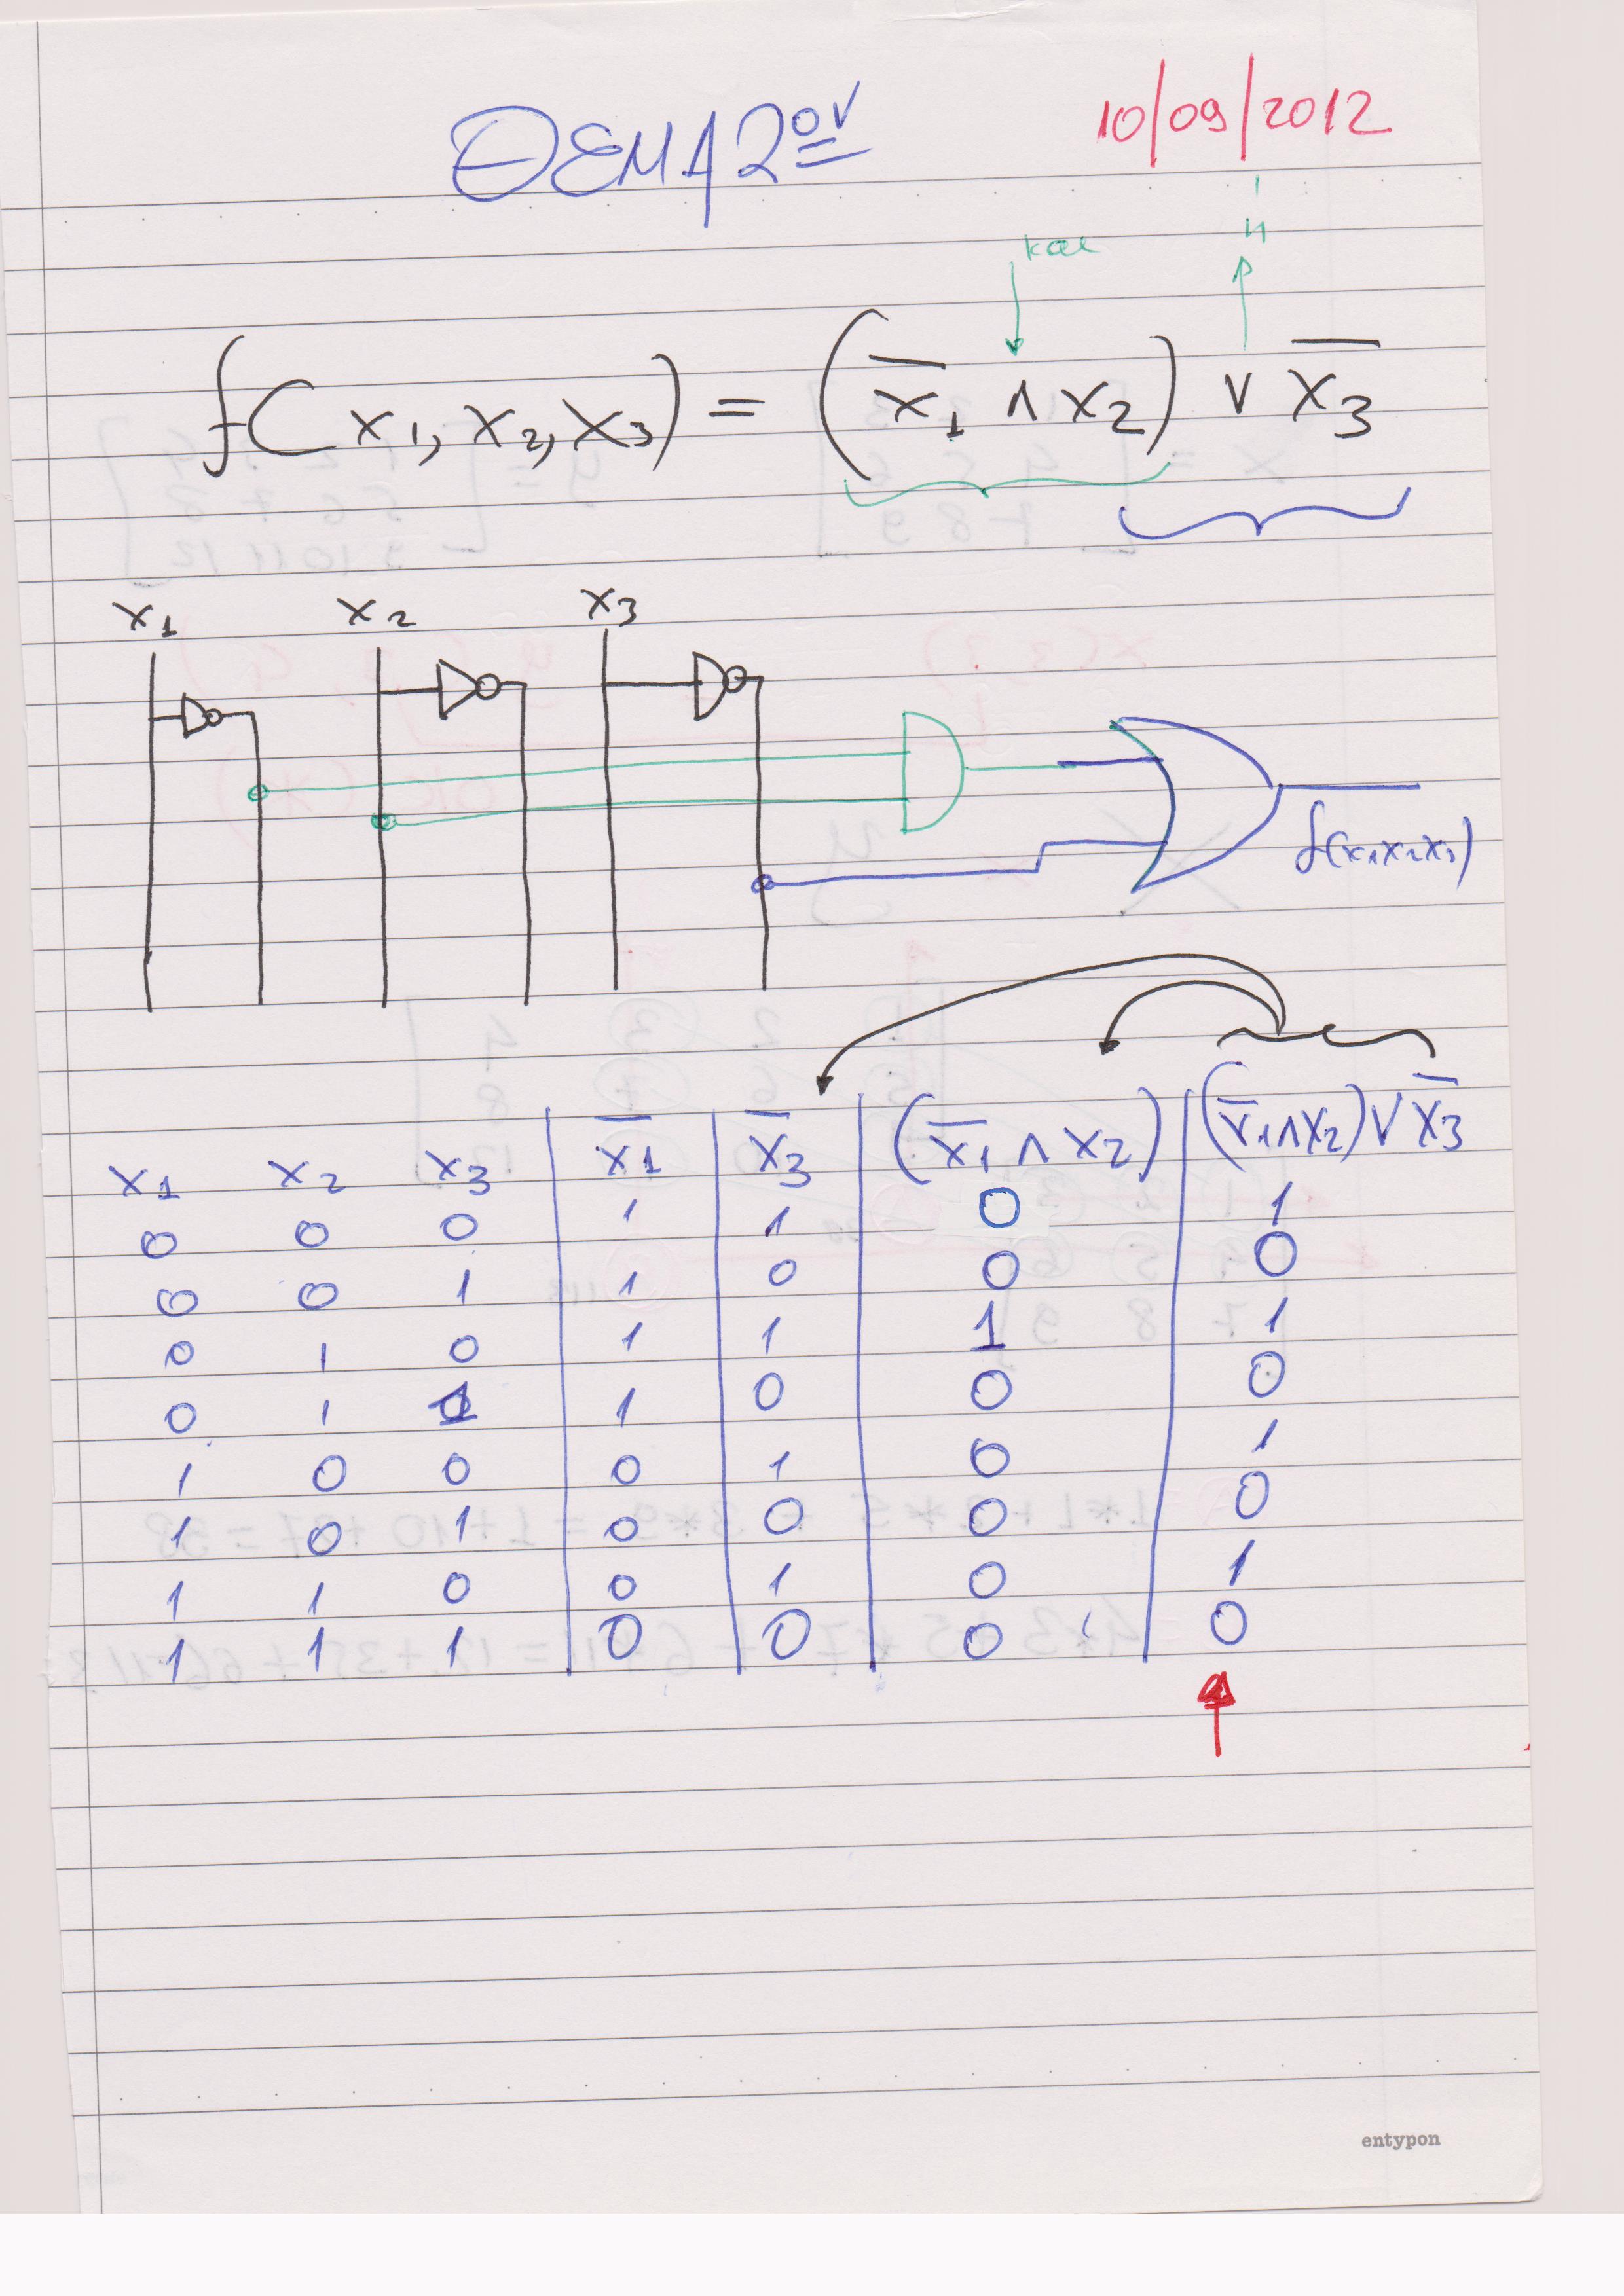 ΘΕΜΑ 2ον
10/09/2012
και
ή
f(x₁, x₂, x₃) = (x̅₁ ∧ x₂) ∨ x̅₃
x₁ x₂ x₃
f(x₁x₂x₃)
x₁ x₂ x₃ x̅₁ x̅₃ (x̅₁ ∧ x₂) (x̅₁∧x₂)∨x̅₃
0 0 0 1 1 0 1
0 0 1 1 0 0 0
0 1 0 1 1 1 1
0 1 1 1 0 0 0
1 0 0 0 1 0 1
1 0 1 0 0 0 0
1 1 0 0 1 0 1
1 1 1 0 0 0 0
entypon